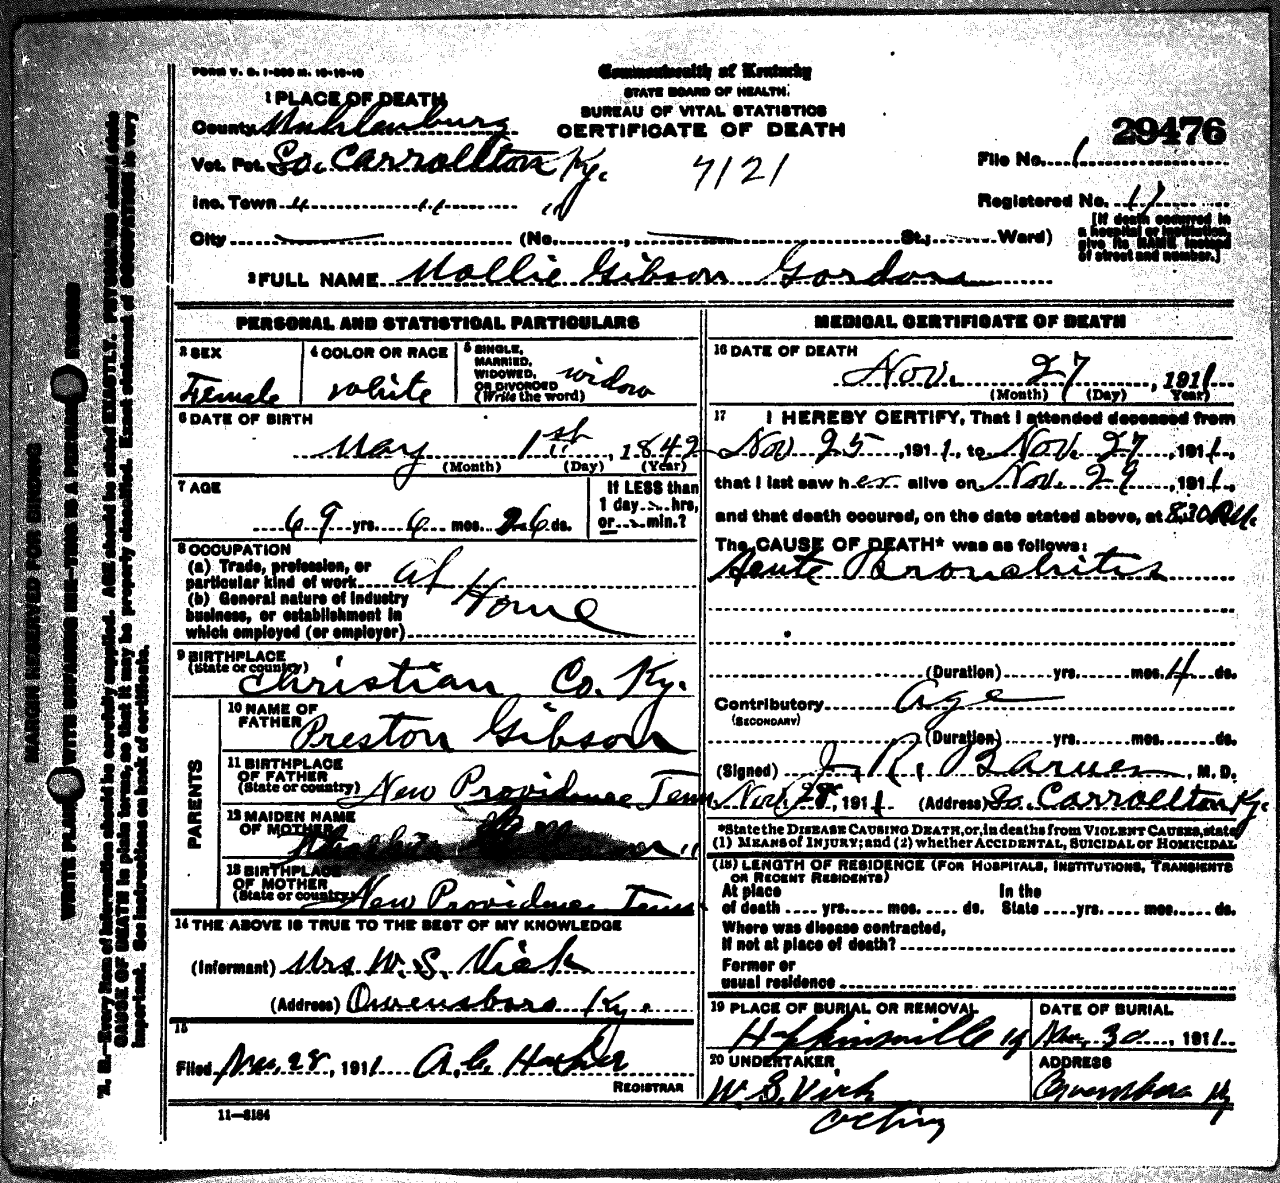 FORM V. S. 1-
Commonwealth of Kentucky
STATE BOARD OF HEALTH.
BUREAU OF VITAL STATISTICS
CERTIFICATE OF DEATH
29476
1 PLACE OF DEATH
County Muhlenburg
Vot. Pct. So. Carrollton Ky.
7121
File No. 1
Inc. Town " " "
Registered No. 17
City (No. , St.; Ward)
[If death occurred in
a hospital or institution,
give its NAME instead
of street and number.]
2 FULL NAME Mollie Gibson Gordon
PERSONAL AND STATISTICAL PARTICULARS
3 SEX
Female
4 COLOR OR RACE
White
5 SINGLE,
MARRIED,
WIDOWED,
OR DIVORCED
(Write the word)
widow
6 DATE OF BIRTH
May 1st, 1842
(Month) (Day) (Year)
7 AGE
69 yrs. 6 mos. 26 ds.
If LESS than
1 day hrs,
or min.?
8 OCCUPATION
(a) Trade, profession, or
particular kind of work At Home
(b) General nature of industry
business, or establishment in
which employed (or employer)
9 BIRTHPLACE
(State or country)
Christian Co. Ky.
PARENTS
10 NAME OF
FATHER Preston Gibson
11 BIRTHPLACE
OF FATHER
(State or country) New Providence Tenn
12 MAIDEN NAME
OF MOTHER
13 BIRTHPLACE
OF MOTHER
(State or country) New Providence Tenn
14 THE ABOVE IS TRUE TO THE BEST OF MY KNOWLEDGE
(Informant) Mrs W. S. Vick
(Address) Owensboro Ky.
15
Filed Nov. 28, 1911 A. C.
REGISTRAR
11—3184
MEDICAL CERTIFICATE OF DEATH
16 DATE OF DEATH
Nov. 27, 1911
(Month) (Day) Year)
17 I HEREBY CERTIFY, That I attended deceased from
Nov 25, 1911, to Nov. 27, 1911,
that I last saw her alive on Nov. 27, 1911,
and that death occured, on the date stated above, at 8.30 P.M.
The CAUSE OF DEATH* was as follows:
Acute Bronchitis
(Duration) yrs. mos. 4 ds.
Contributory Age
(SECONDARY)
(Duration) yrs. mos. ds.
(Signed) J. R. Barnes, M. D.
Nov. 28, 1911 (Address) So. Carrollton Ky.
*State the DISEASE CAUSING DEATH, or, in deaths from VIOLENT CAUSES, state
(1) MEANS of INJURY; and (2) whether ACCIDENTAL, SUICIDAL or HOMICIDAL
(18) LENGTH OF RESIDENCE (FOR HOSPITALS, INSTITUTIONS, TRANSIENTS
OR RECENT RESIDENTS)
At place In the
of death yrs. mos. ds. State yrs. mos. ds.
Where was disease contracted,
if not at place of death?
Former or
usual residence
19 PLACE OF BURIAL OR REMOVAL
Hopkinsville Ky
DATE OF BURIAL
Nov. 30, 1911.
20 UNDERTAKER
W S. Vick
acting
ADDRESS
Owensboro Ky
MARGIN RESERVED FOR BINDING
WRITE PLAINLY WITH UNFADING INK—THIS IS A PERMANENT RECORD
N. B.—Every item of information should be carefully supplied. AGE should be stated EXACTLY. PHYSICIANS should state
CAUSE OF DEATH in plain terms, so that it may be properly classified. Exact statement of OCCUPATION is very
important. See instructions on back of certificate.